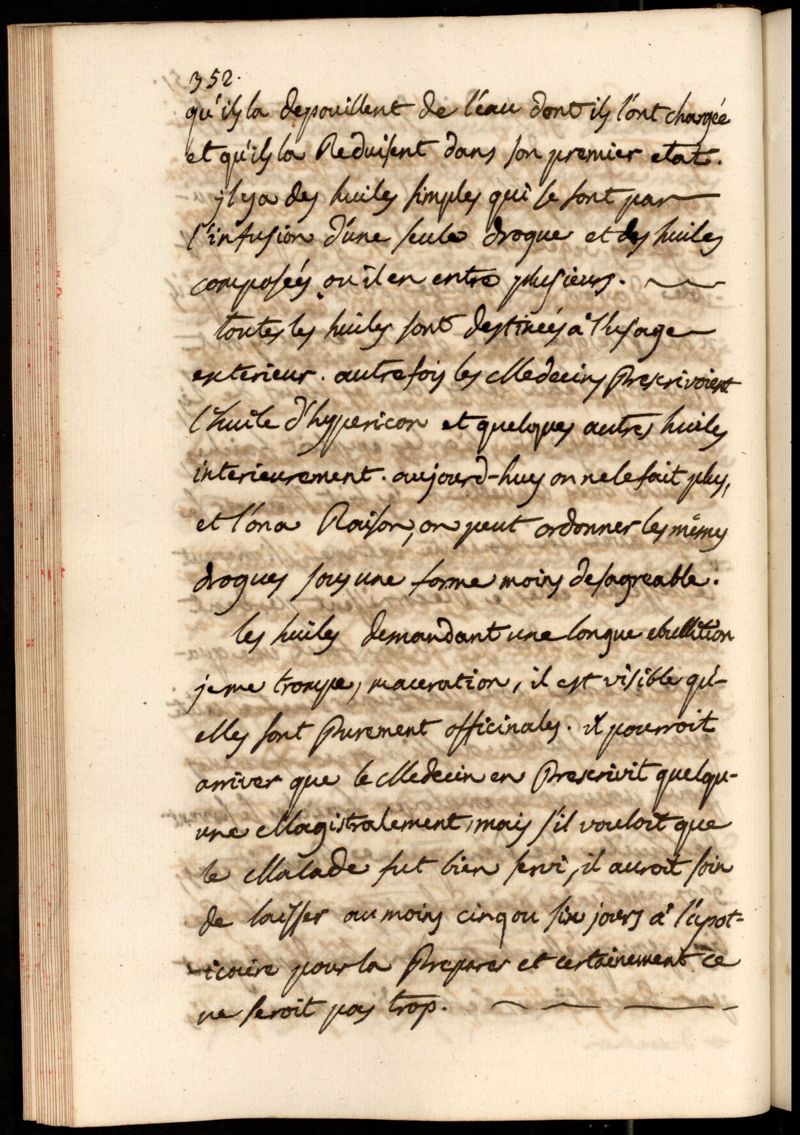 352.
qu'ils la depouillent de l'eau dont ils l'ont chargée
et qu'ils la Reduisent dans son premier etat.
jl y a des huiles simples qui se font par
l'infusion d'une seule drogue et des huiles
composées ou il en entre plusieurs.
toutes les huiles sont destineés a l'usage
exterieur. autrefois les Medecins Prescrivoient
l'huile d'hypericon et quelques autres huiles
interieurement. aujourd-huy on ne le fait plus,
et l'on a Raison, on peut ordonner les mêmes
drogues sous une forme moins desagreable.
les huiles demandant une longue ebullition
je me trompe, maceration, il est visible qu'-
elles sont Purement officinales. il pourroit
arriver que le Medecin en Prescrivit quelqu-
une Magistralement, mais s'il vouloit que
le Malade fut bien servi, il auroit soin
de laisser au moins cinq ou six jours a l'apot=
icaire pour la Preparer et certainement ce
ne seroit pas trop.